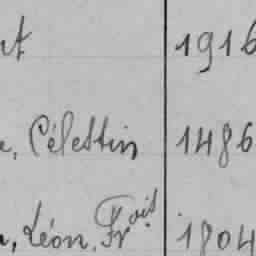 at 1916
e, Célestin 1486
, Léon, Fr^ois 1804